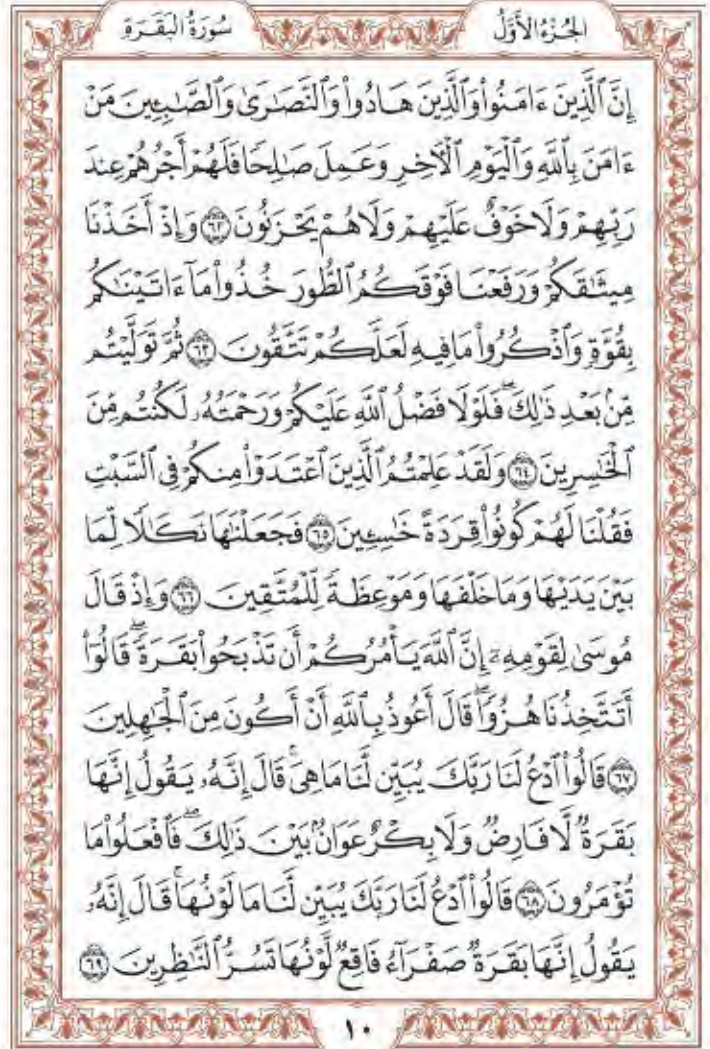 الجُزْءُ الأَوَّلُ
سُورَةُ البَقَرَةِ
إِنَّ ٱلَّذِينَ ءَامَنُواْ وَٱلَّذِينَ هَادُواْ وَٱلنَّصَٰرَىٰ وَٱلصَّٰبِـِٔينَ مَنْ
ءَامَنَ بِٱللَّهِ وَٱلْيَوْمِ ٱلْـَٔاخِرِ وَعَمِلَ صَٰلِحًا فَلَهُمْ أَجْرُهُمْ عِندَ
رَبِّهِمْ وَلَا خَوْفٌ عَلَيْهِمْ وَلَا هُمْ يَحْزَنُونَ ٦٢ وَإِذْ أَخَذْنَا
مِيثَٰقَكُمْ وَرَفَعْنَا فَوْقَكُمُ ٱلطُّورَ خُذُواْ مَآ ءَاتَيْنَٰكُم
بِقُوَّةٍ وَٱذْكُرُواْ مَا فِيهِ لَعَلَّكُمْ تَتَّقُونَ ٦٣ ثُمَّ تَوَلَّيْتُم
مِّنۢ بَعْدِ ذَٰلِكَۖ فَلَوْلَا فَضْلُ ٱللَّهِ عَلَيْكُمْ وَرَحْمَتُهُۥ لَكُنتُم مِّنَ
ٱلْخَٰسِرِينَ ٦٤ وَلَقَدْ عَلِمْتُمُ ٱلَّذِينَ ٱعْتَدَوْاْ مِنكُمْ فِى ٱلسَّبْتِ
فَقُلْنَا لَهُمْ كُونُواْ قِرَدَةً خَٰسِـِٔينَ ٦٥ فَجَعَلْنَٰهَا نَكَٰلًا لِّمَا
بَيْنَ يَدَيْهَا وَمَا خَلْفَهَا وَمَوْعِظَةً لِّلْمُتَّقِينَ ٦٦ وَإِذْ قَالَ
مُوسَىٰ لِقَوْمِهِۦٓ إِنَّ ٱللَّهَ يَأْمُرُكُمْ أَن تَذْبَحُواْ بَقَرَةًۖ قَالُوٓاْ
أَتَتَّخِذُنَا هُزُوًاۖ قَالَ أَعُوذُ بِٱللَّهِ أَنْ أَكُونَ مِنَ ٱلْجَٰهِلِينَ
٦٧ قَالُواْ ٱدْعُ لَنَا رَبَّكَ يُبَيِّن لَّنَا مَا هِىَۚ قَالَ إِنَّهُۥ يَقُولُ إِنَّهَا
بَقَرَةٌ لَّا فَارِضٌ وَلَا بِكْرٌ عَوَانٌۢ بَيْنَ ذَٰلِكَۖ فَٱفْعَلُواْ مَا
تُؤْمَرُونَ ٦٨ قَالُواْ ٱدْعُ لَنَا رَبَّكَ يُبَيِّن لَّنَا مَا لَوْنُهَاۚ قَالَ إِنَّهُۥ
يَقُولُ إِنَّهَا بَقَرَةٌ صَفْرَآءُ فَاقِعٌ لَّوْنُهَا تَسُرُّ ٱلنَّٰظِرِينَ ٦٩
١٠